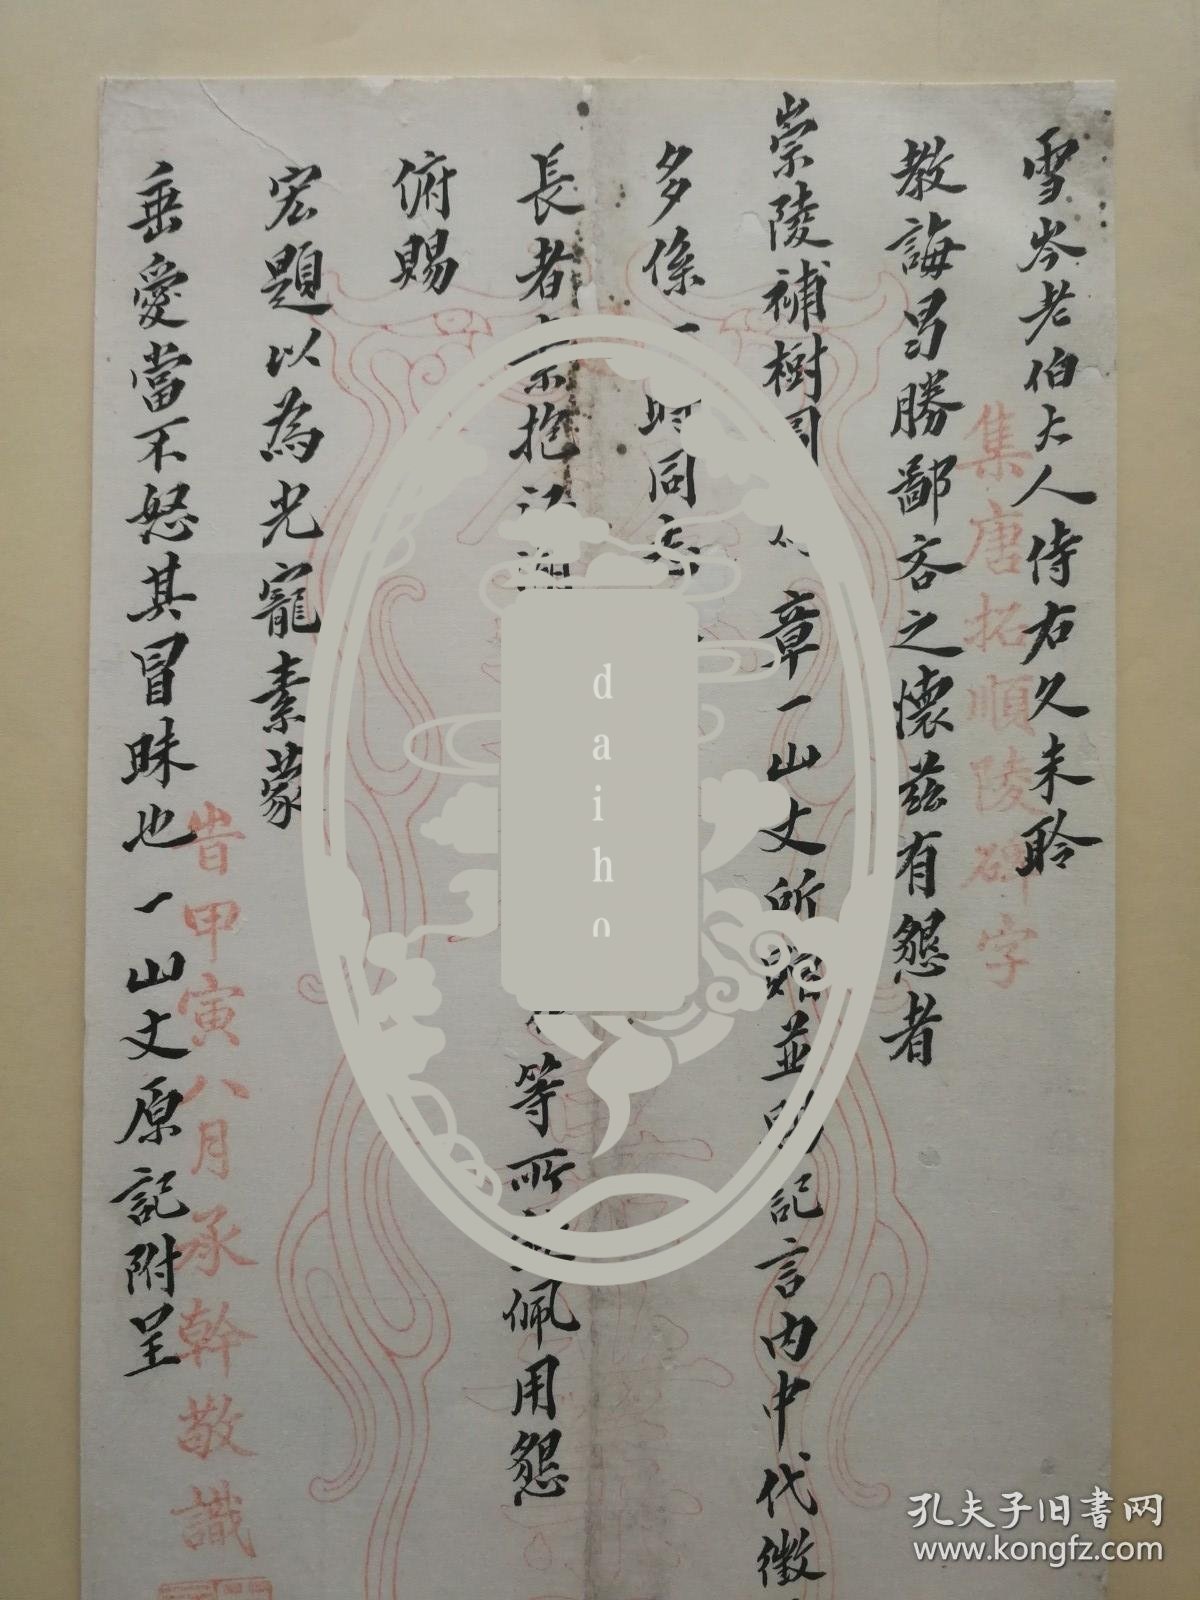 雪岑老伯大人侍右久未聆
教誨曷勝鄙吝之懷茲有懇者
崇陵補樹圖 章一山丈所 並 記言內中代徵
多係一時同
長者 抱 等所 佩用懇
俯賜
宏題以為光寵素蒙
垂愛當不怒其冒昧也一山丈原記附呈
集唐拓順陵碑字
昔甲寅八月承幹敬識
daiho
孔夫子旧书网
www.kongfz.com